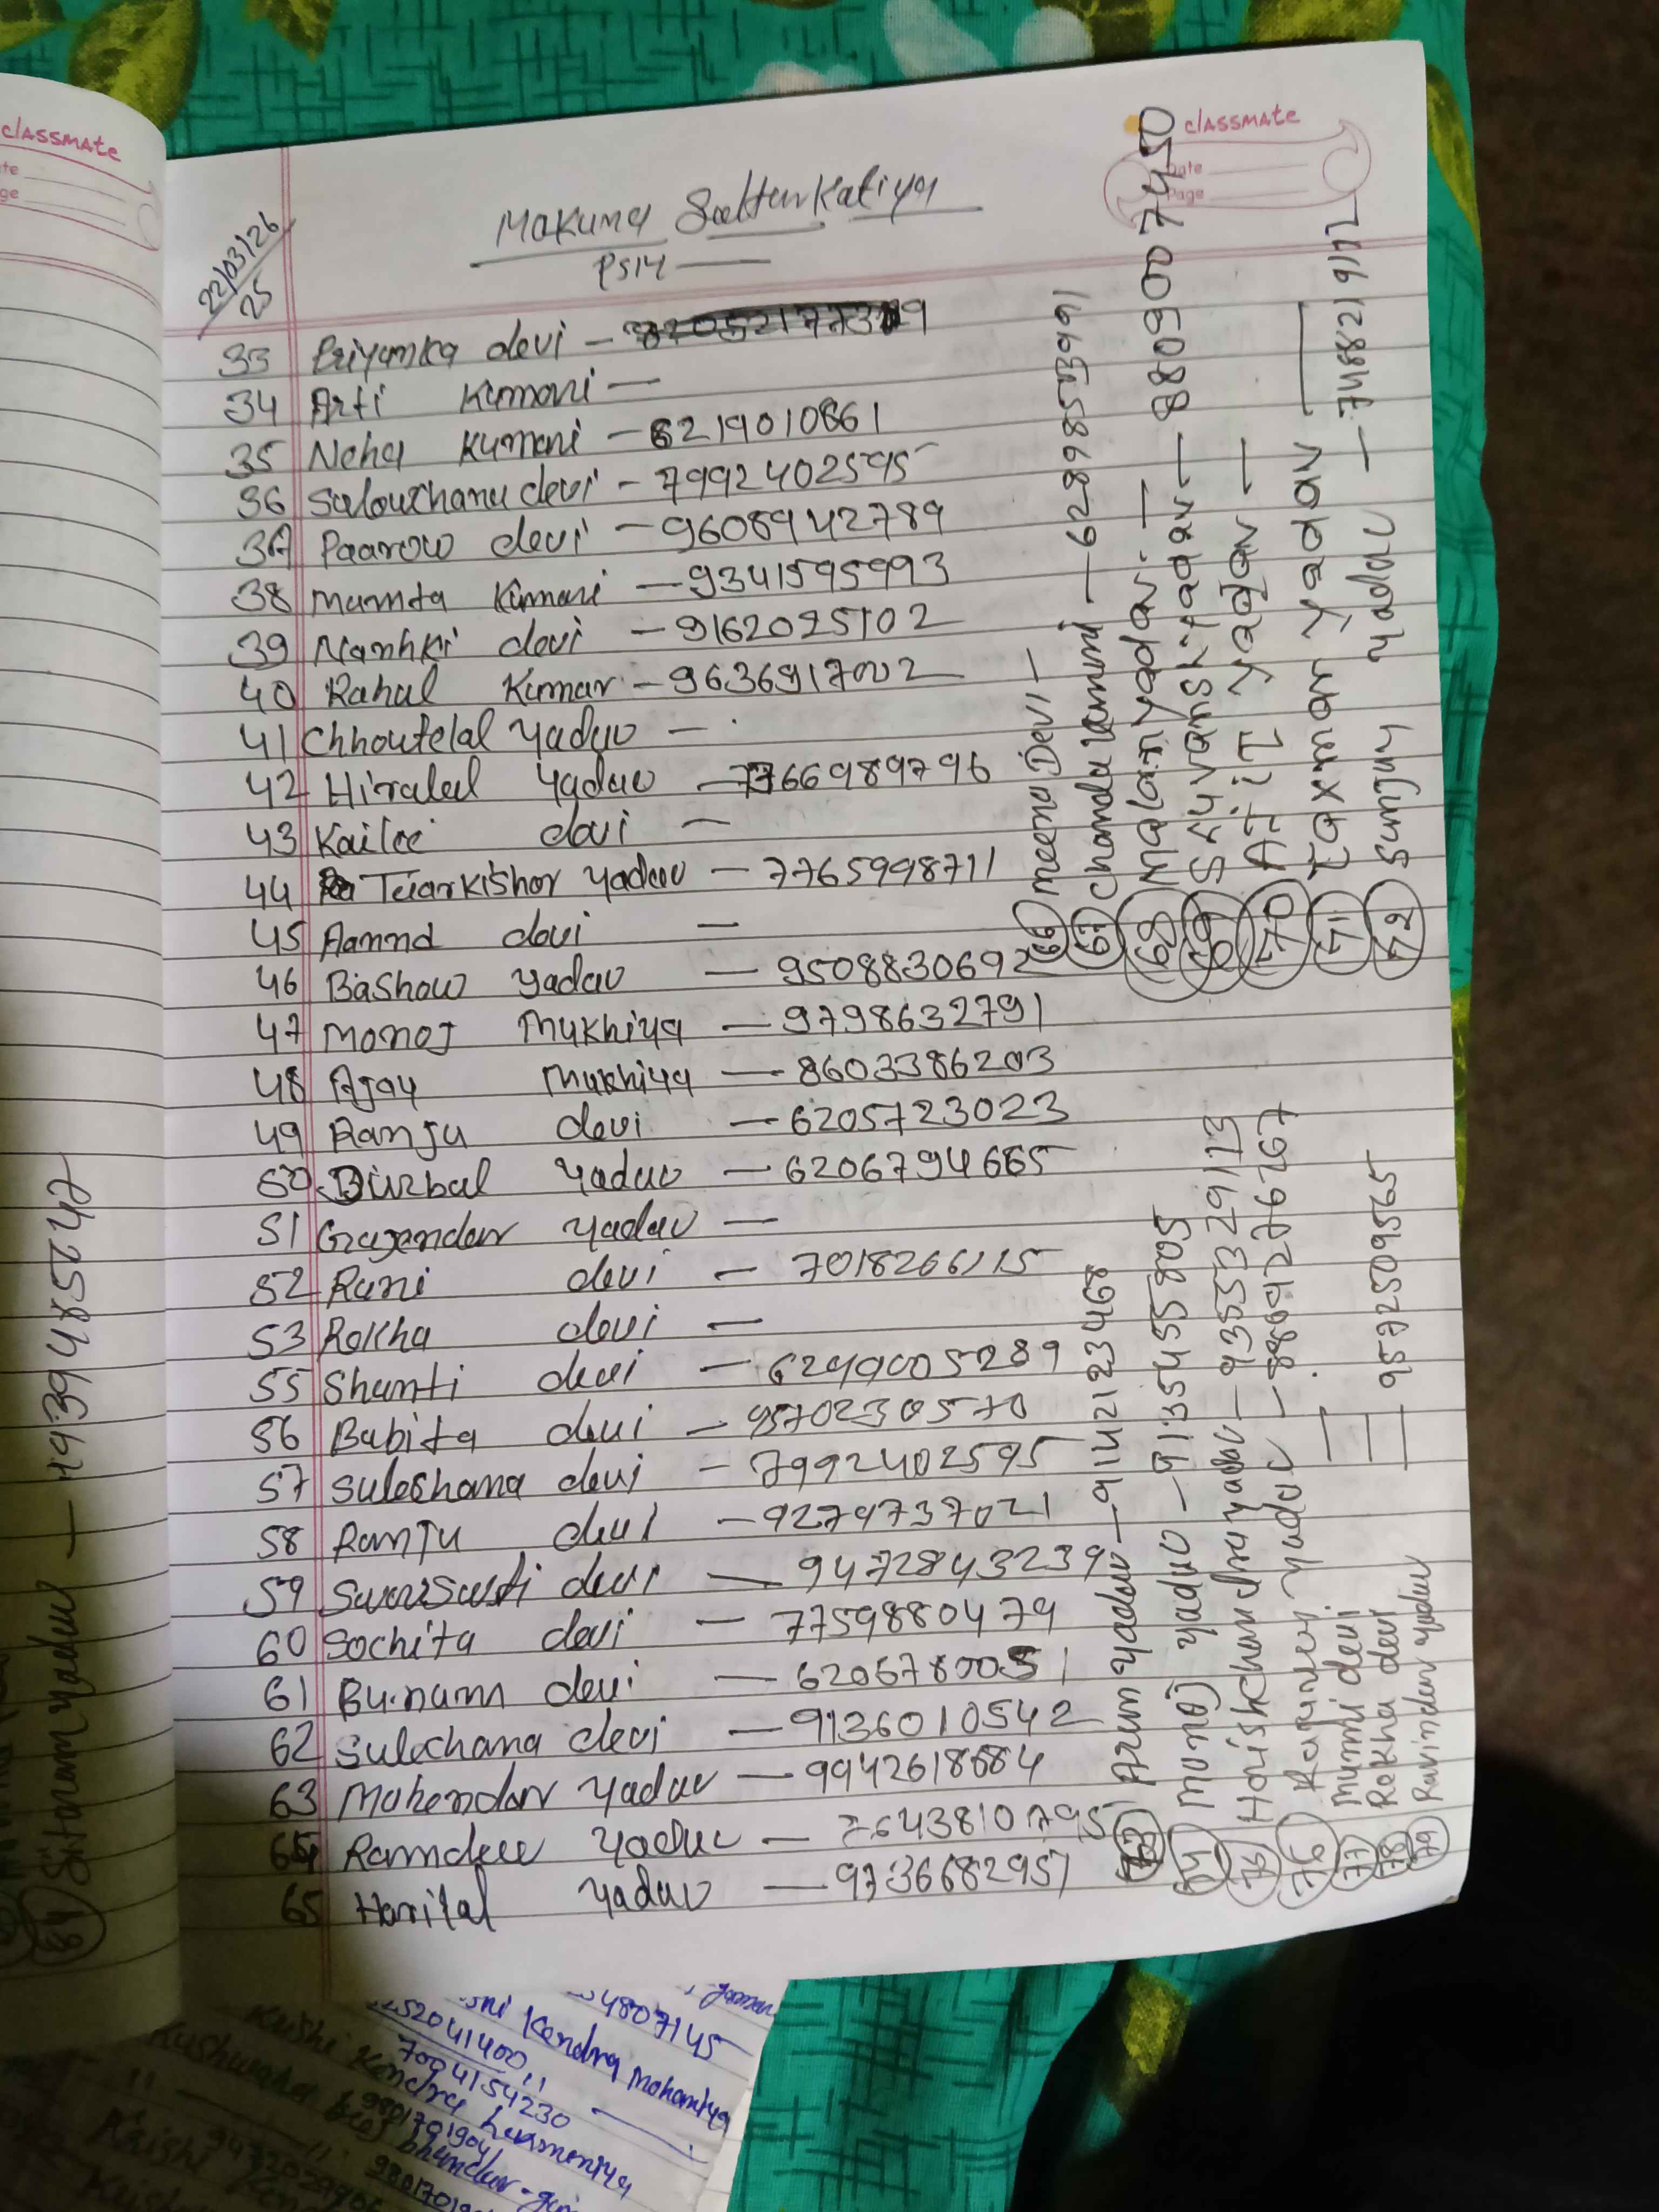 classmate
Date
Page
22/03/26
25
Makuna Salturkatiya
PS14
33 Priyanka devi -
34 Arti Kumari -
35 Neha Kumari - 6219010861
36 Salouchana devi - 7992402595
37 Paarow devi - 9608942789
38 Mamta Kumari - 9341595993
39 Nanhki devi - 9162025102
40 Rahul Kumar - 9636917002
41 Chhoutelal Yadav -
42 Hiralal Yadav - 7766989796
43 Kailee devi -
44 Tuarkishor Yadav - 7765998711
45 Aannd devi -
46 Bashow Yadav - 9508830692
47 Monoj Mukhiya - 9798632791
48 Ajay Mukhiya - 8603386203
49 Ranju devi - 6205723023
50 Durbal Yadav - 6206794665
51 Gajendar Yadav -
52 Rani devi - 7018266115
53 Rekha devi -
55 Shanti devi - 6299005289
56 Babita devi - 9570230570
57 Suleshana devi - 7992402595
58 Ranju devi - 9279737021
59 Swarswati devi - 9472843239
60 Sochita devi - 7759880479
61 Bunam devi - 6206780051
62 Sulochana devi - 9136010542
63 Mahendar Yadav - 9942618684
64 Ramdew Yadav - 7643810795
65 Harilal Yadav - 9736682957
66 Meena Devi -
67 Chanda Kumari - 6289853991
68 Malan Yadav -
69 Sryvansh Yadav - 8809007450
70 AJIT Yadav -
71 Laxman Yadav
72 Sunjay Yadav - 7488219172
73 Arun Yadav - 9142123468
74 Monoj Yadav - 9135455805
75 Harishchandra Yadav - 9355329113
76 Yadav - 8869276267
77 Munni devi
78 Rekha devi
79 Ravinder Yadav - 9572509565
classmate
84 Sitaram Yadav - 9394855642
4807145
Kendra Mohaniya
52041400
7004154230
Kushi Kendra
9801701904
Kushwaha
Krishi